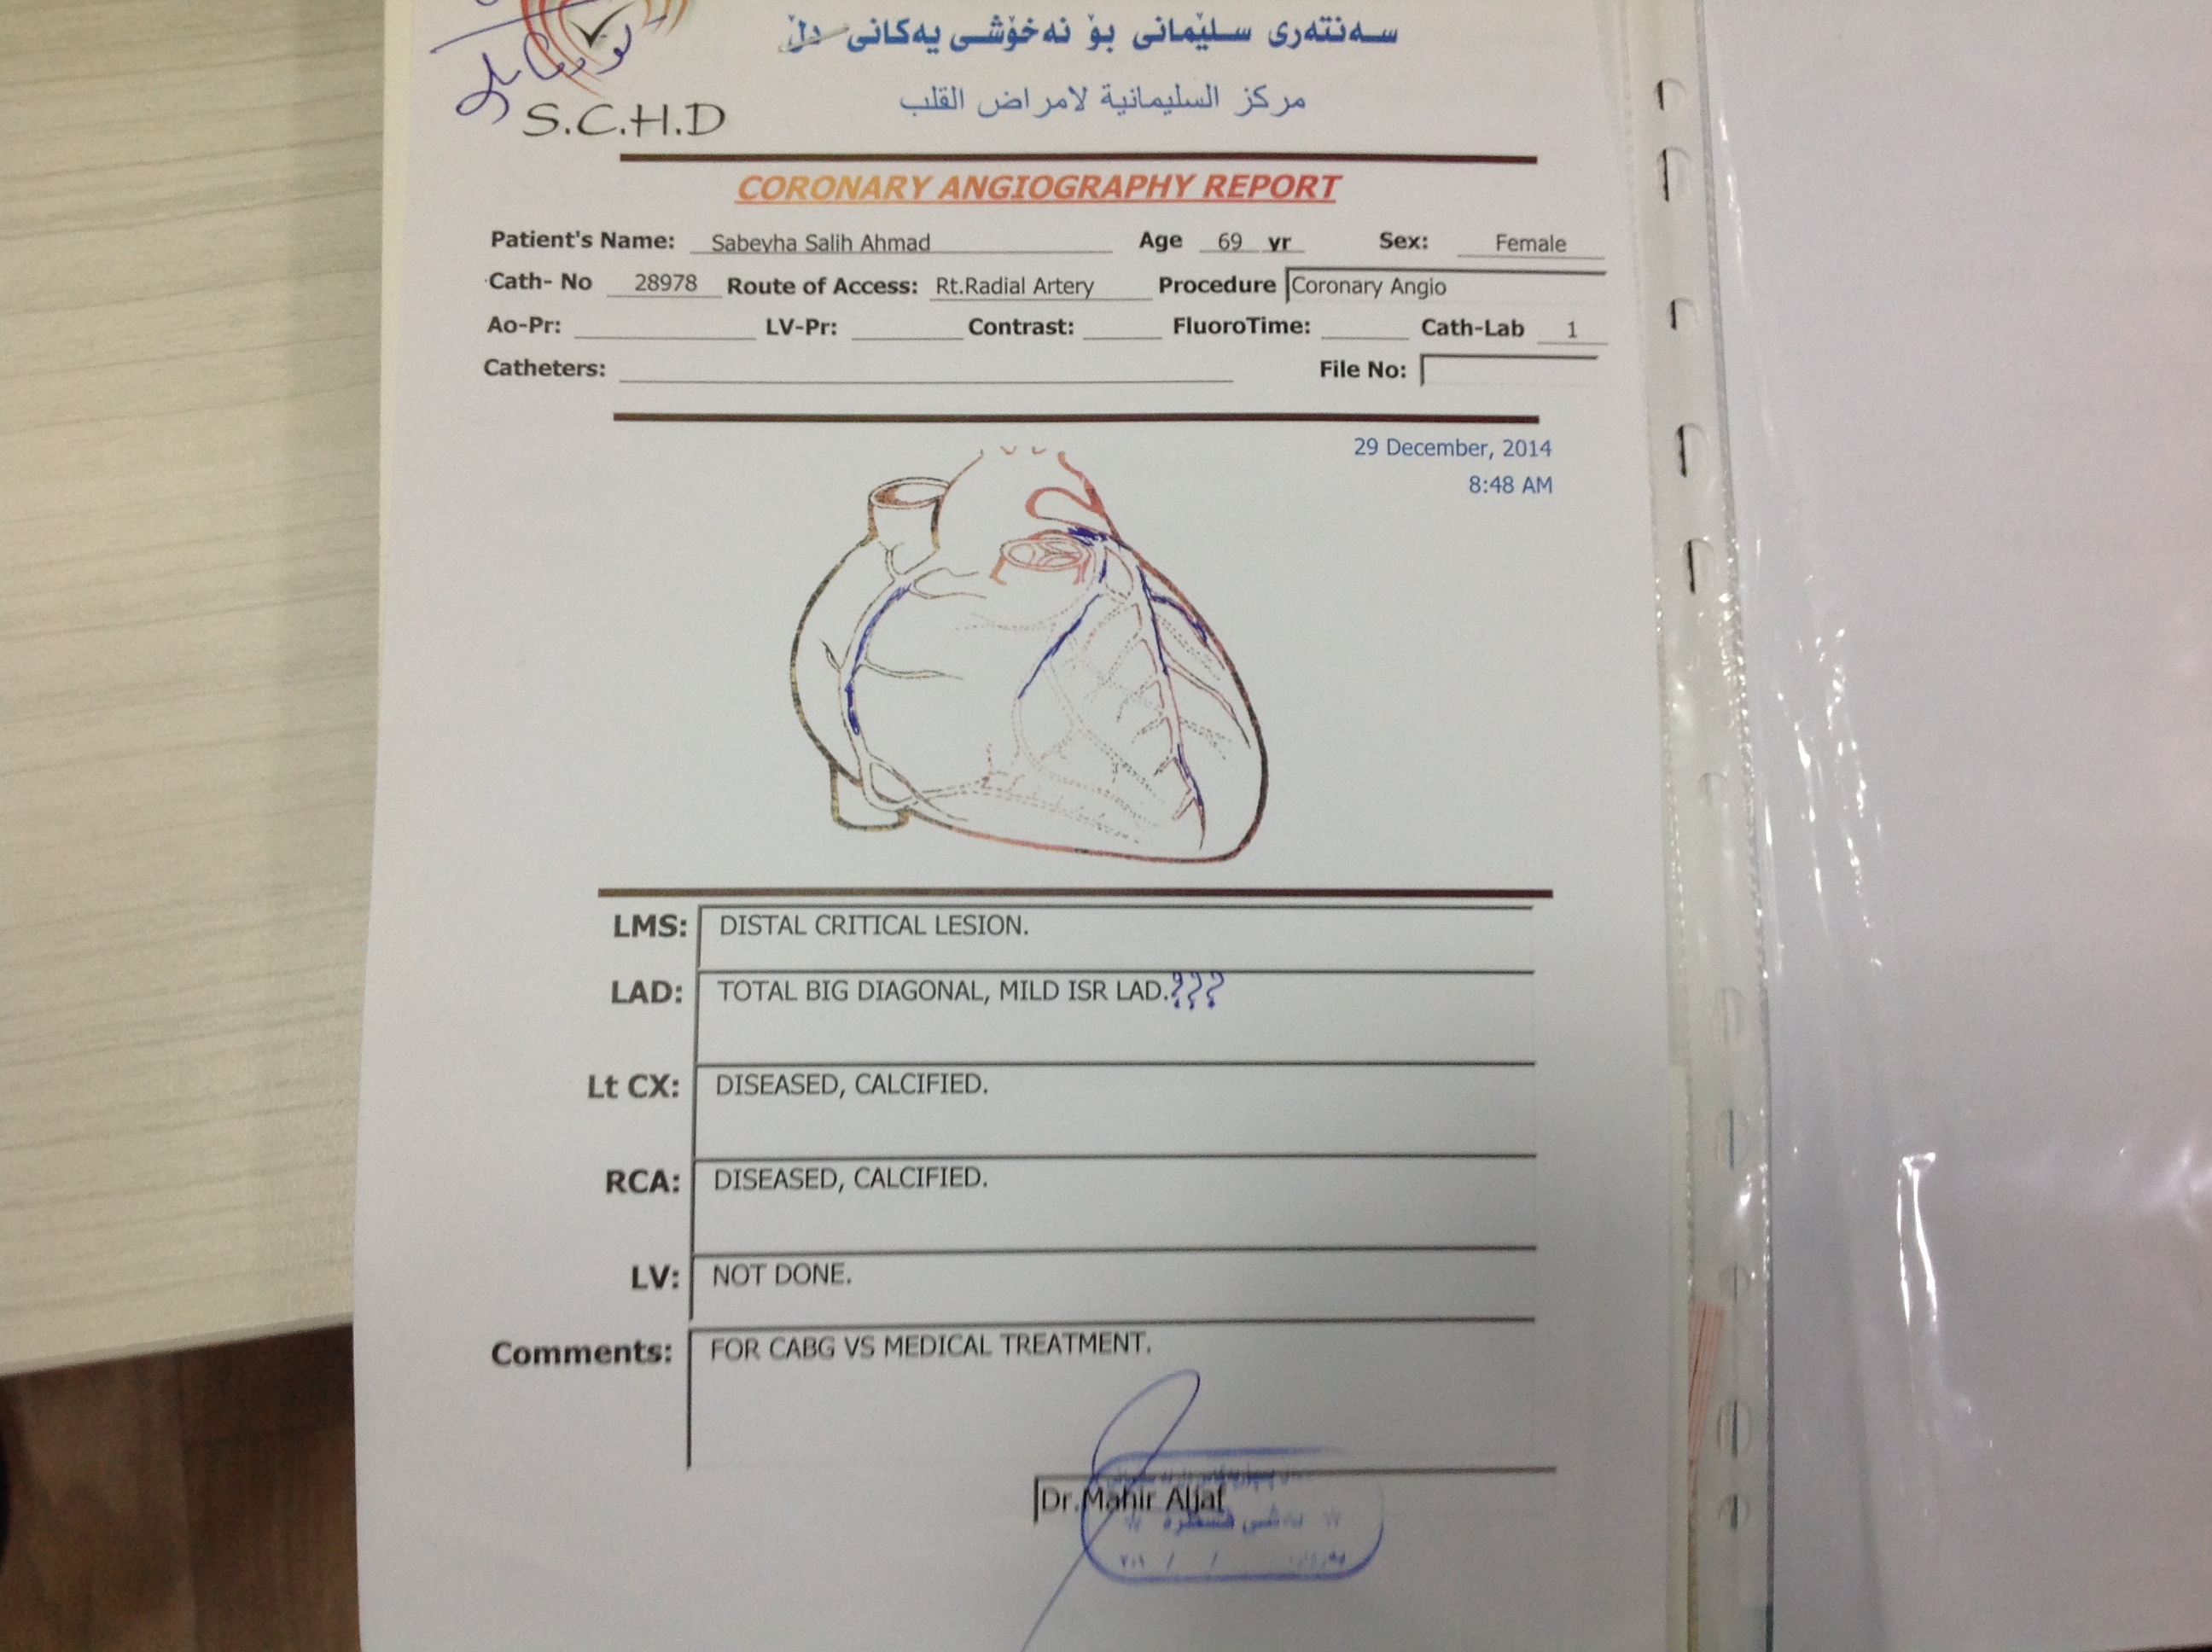 سەنتەری سلێمانی بۆ نەخۆشی یەکانی دڵ
مركز السليمانية لامراض القلب
S.C.H.D
CORONARY ANGIOGRAPHY REPORT
Patient's Name: Sabeyha Salih Ahmad Age 69 yr Sex: Female
Cath- No 28978 Route of Access: Rt.Radial Artery Procedure Coronary Angio
Ao-Pr: LV-Pr: Contrast: FluoroTime: Cath-Lab 1
Catheters: File No:
29 December, 2014
8:48 AM
LMS: DISTAL CRITICAL LESION.
LAD: TOTAL BIG DIAGONAL, MILD ISR LAD.???
Lt CX: DISEASED, CALCIFIED.
RCA: DISEASED, CALCIFIED.
LV: NOT DONE.
Comments: FOR CABG VS MEDICAL TREATMENT.
Dr.Mahir Aljaf